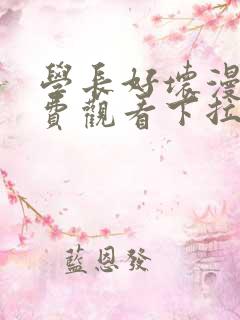 學長好壞漫
費觀看下拉
藍恩發